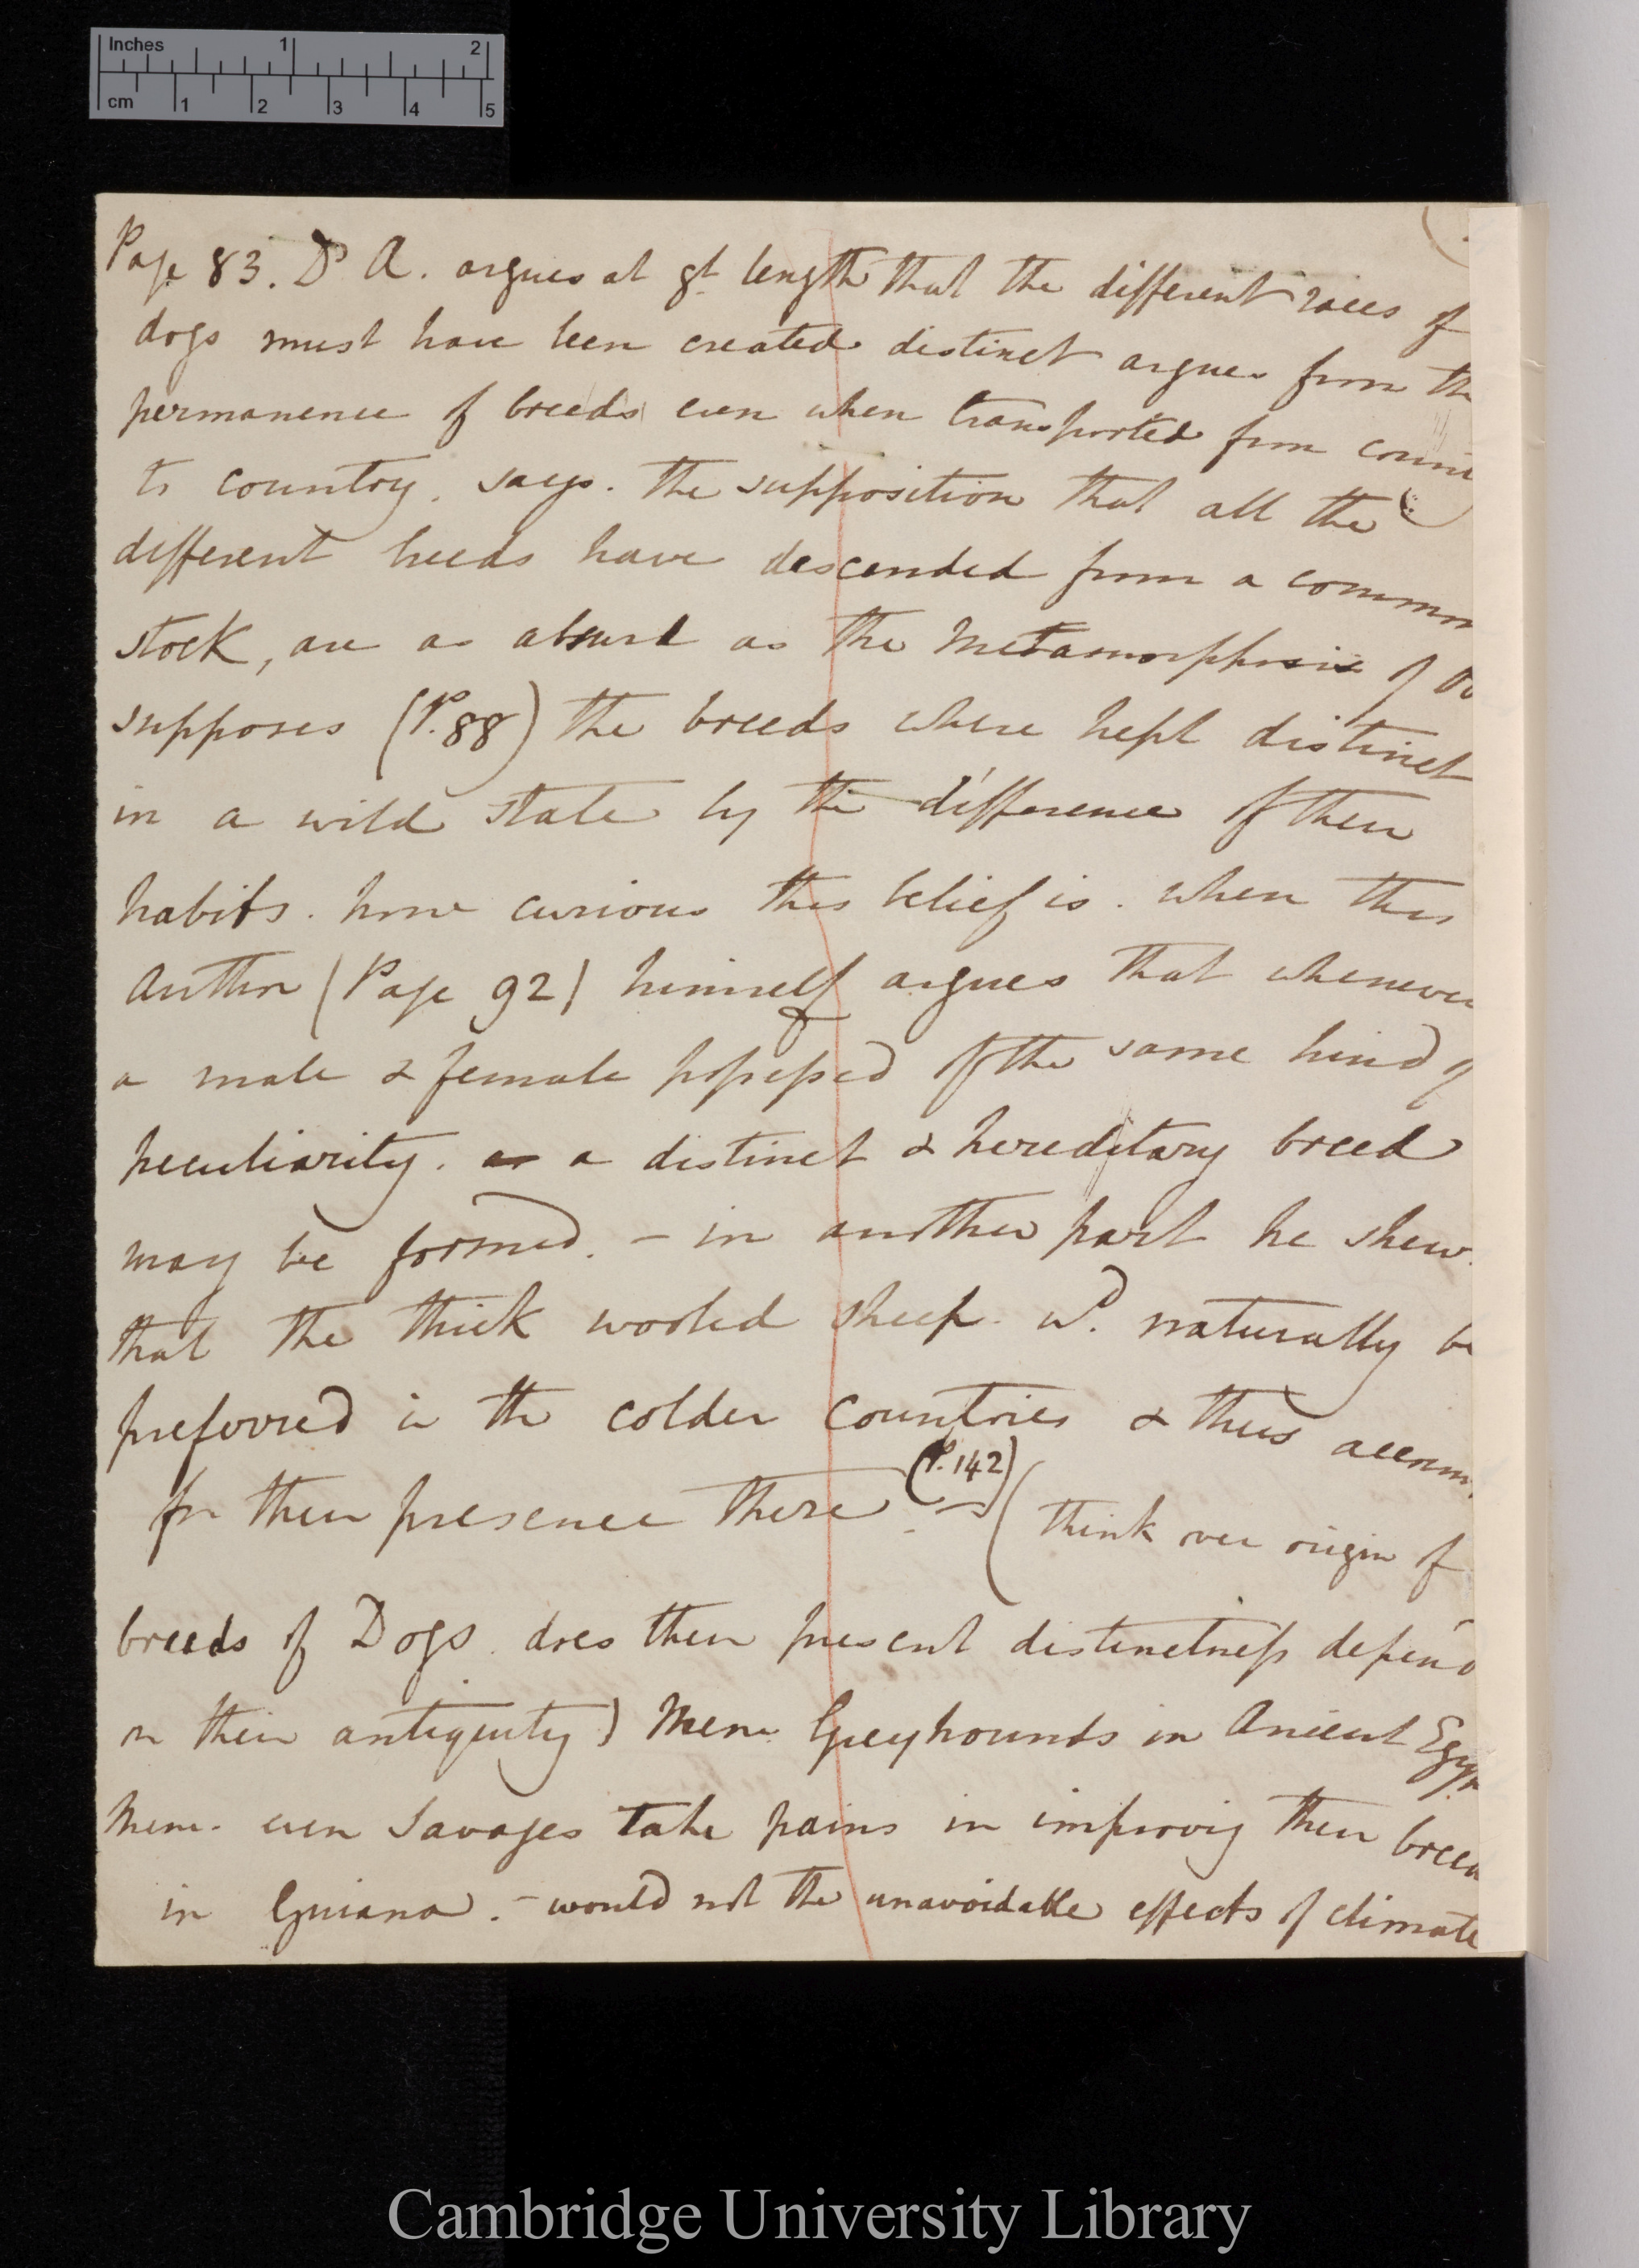 Inches 1 2
cm 1 2 3 4 5
Page 83. Dr A. argues at gt length that the different races of
dogs must have been created distinct argues from the
permanence of breeds even when transported from
to country. says. the supposition that all the
different breeds have descended from a common
stock, are as absurd as the Metamorphosis of
supposes (P. 88) the breeds where kept distinct
in a wild state by the difference of their
habits. how curious this belief is. when this
Author (Page 92) himself argues that whenever
a male & female possessed of the same kind of
peculiarity. as a distinct & hereditary breed
may be formed. – in another part he shew
that the thick wooled sheep. wd. naturally be
preferred in the colder countries & thus
for their presence there. – (P. 142) (think over origin of
breeds of Dogs. does their present distinctness depend
on their antiquity) Mem. Greyhounds in Ancient
Mem. even Savages take pains in improvig their
in Guiana. – would not the unavoidable effects of climate
Cambridge University Library